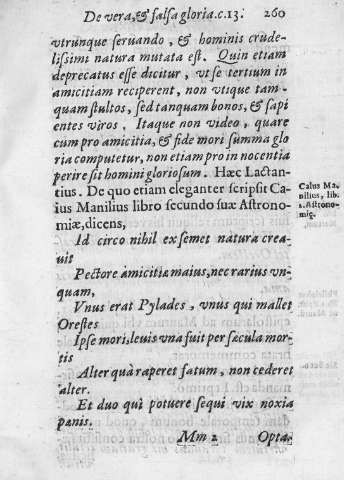 De vera, & falsa gloria.c.13. 260
vtrunque seruando, & hominis crude-
lissimi natura mutata est. Quin etiam
deprecatus esse dicitur, vt se tertium in
amicitiam reciperent, non vtique tam-
quam stultos, sed tanquam bonos, & sapi
entes viros. Itaque non video, quare
cum pro amicitia, & fide mori summa glo
ria computetur, non etiam pro innocentia
perire sit homini gloriosum. Hæc Lactan-
tius. De quo etiam eleganter scripsit Ca
ius Manilius libro secundo suæ Astrono-
miæ, dicens,
Caius Ma-
nilius, lib.
2. Astrono-
miç.
Id circo nihil ex semet natura crea-
uit
Pectore amicitiæ maius, nec rarius vn-
quam,
Vnus erat Pylades, vnus qui mallet
Orestes
Ipse mori, leuis vna fuit per sæcula mor-
tis
Alter quà raperet fatum, non cederet
alter.
Et duo qui potuere sequi vix noxia
pœnis.
Mm 2 Opta-